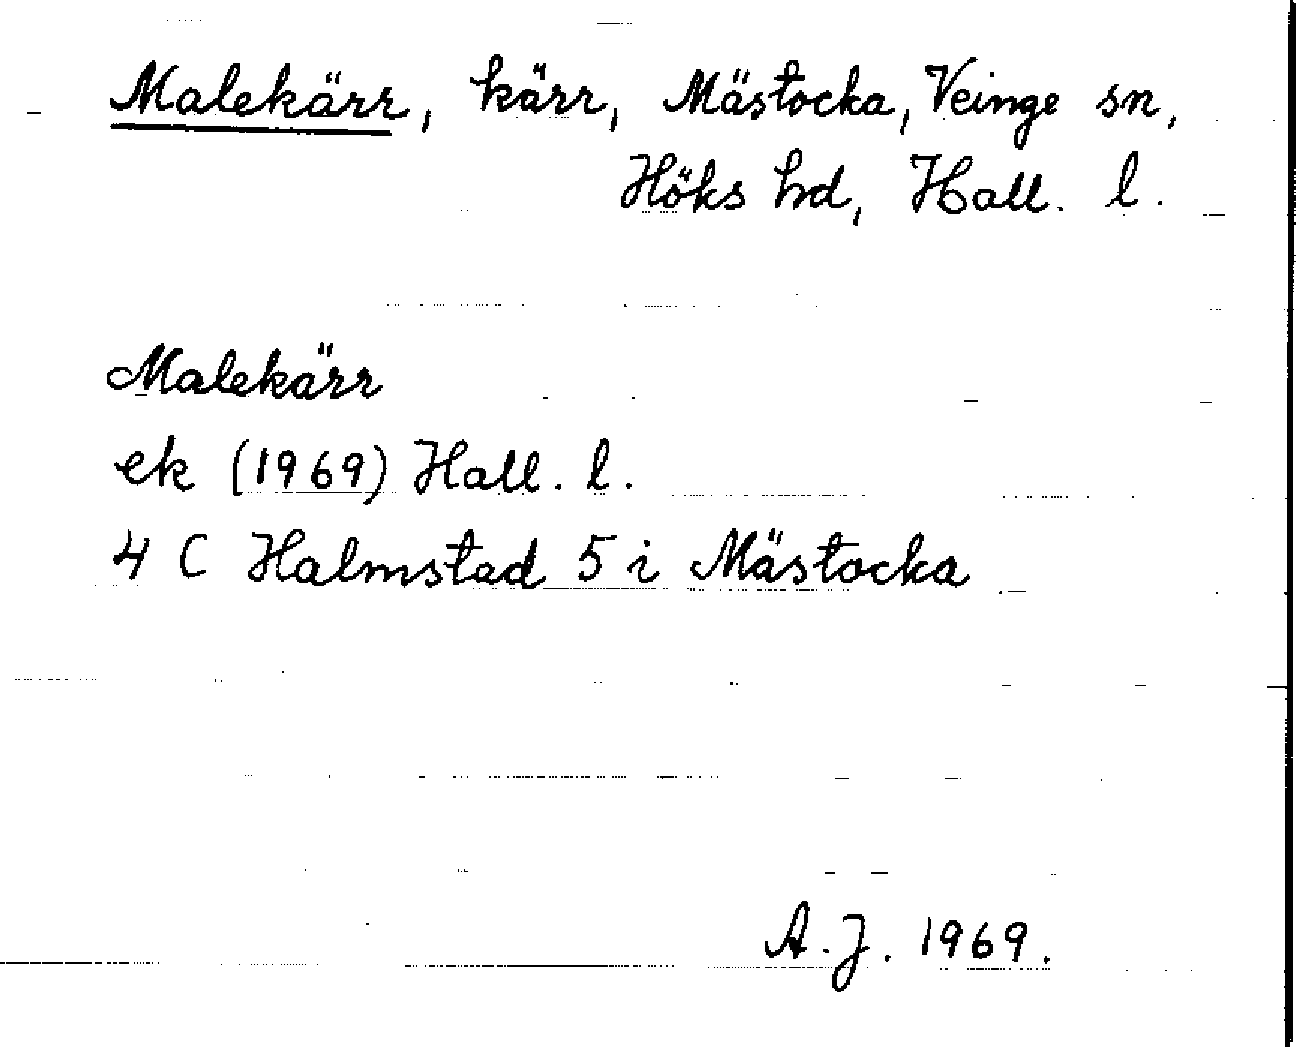 Malekärr, kärr, Mästocka, Veinge sn,
Höks hd, Hall. l.
Malekärr
ek (1969) Hall. l.
4 C Halmstad 5 i Mästocka
A.J. 1969.